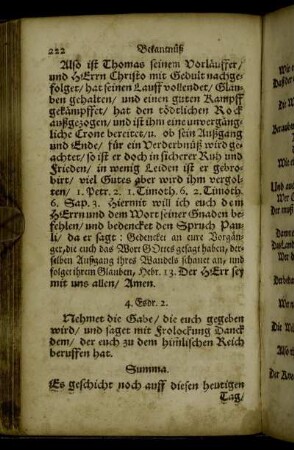 222 Bekantnüß
Also ist Thomas seinem Vorläuffer/
und HErrn Christo mit Gedult nachge-
folget/ hat seinen Lauff vollendet/ Glau-
ben gehalten/ und einen guten Kampff
gekämpffet/ hat den tödtlichen Rock
außgezogen/ und ist ihm eine unvergäng-
liche Crone bereitet/ u. ob sein Außgang
und Ende/ für ein Verderbnüß wird ge-
achtet/ so ist er doch in sicherer Ruh und
Frieden/ in wenig Leiden ist er gepro-
birt/ viel Gutes aber wird ihm vergol-
ten/ 1. Petr. 2. 1. Timoth. 6. 2. Timoth.
6. Sap. 3. Hiermit will ich euch dem
HErrn und dem Wort seiner Gnaden be-
fehlen/ und bedencket den Spruch Pau-
li/ da er sagt: Gedencket an eure Vorgän-
ger, die euch das Wort GOttes gesagt haben, der-
selben Außgang ihres Wandels schauet an, und
folget ihrem Glauben, Hebr. 13. Der HErr sey
mit uns allen/ Amen.
4. Esdr. 2.
Nehmet die Gabe/ die euch gegeben
wird/ und saget mit Frolockung Danck
dem/ der euch zu dem himlischen Reich
beruffen hat.
Summa.
Es geschicht noch auff diesen heutigen
Tag/